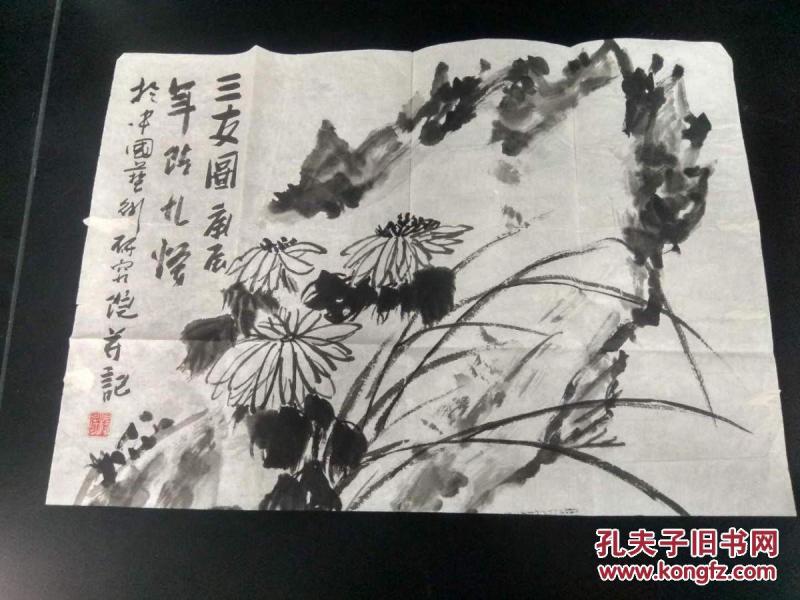 三友圖 庚辰
年 扎
於中國藝術研究院并記
孔夫子旧书网
www.kongfz.com